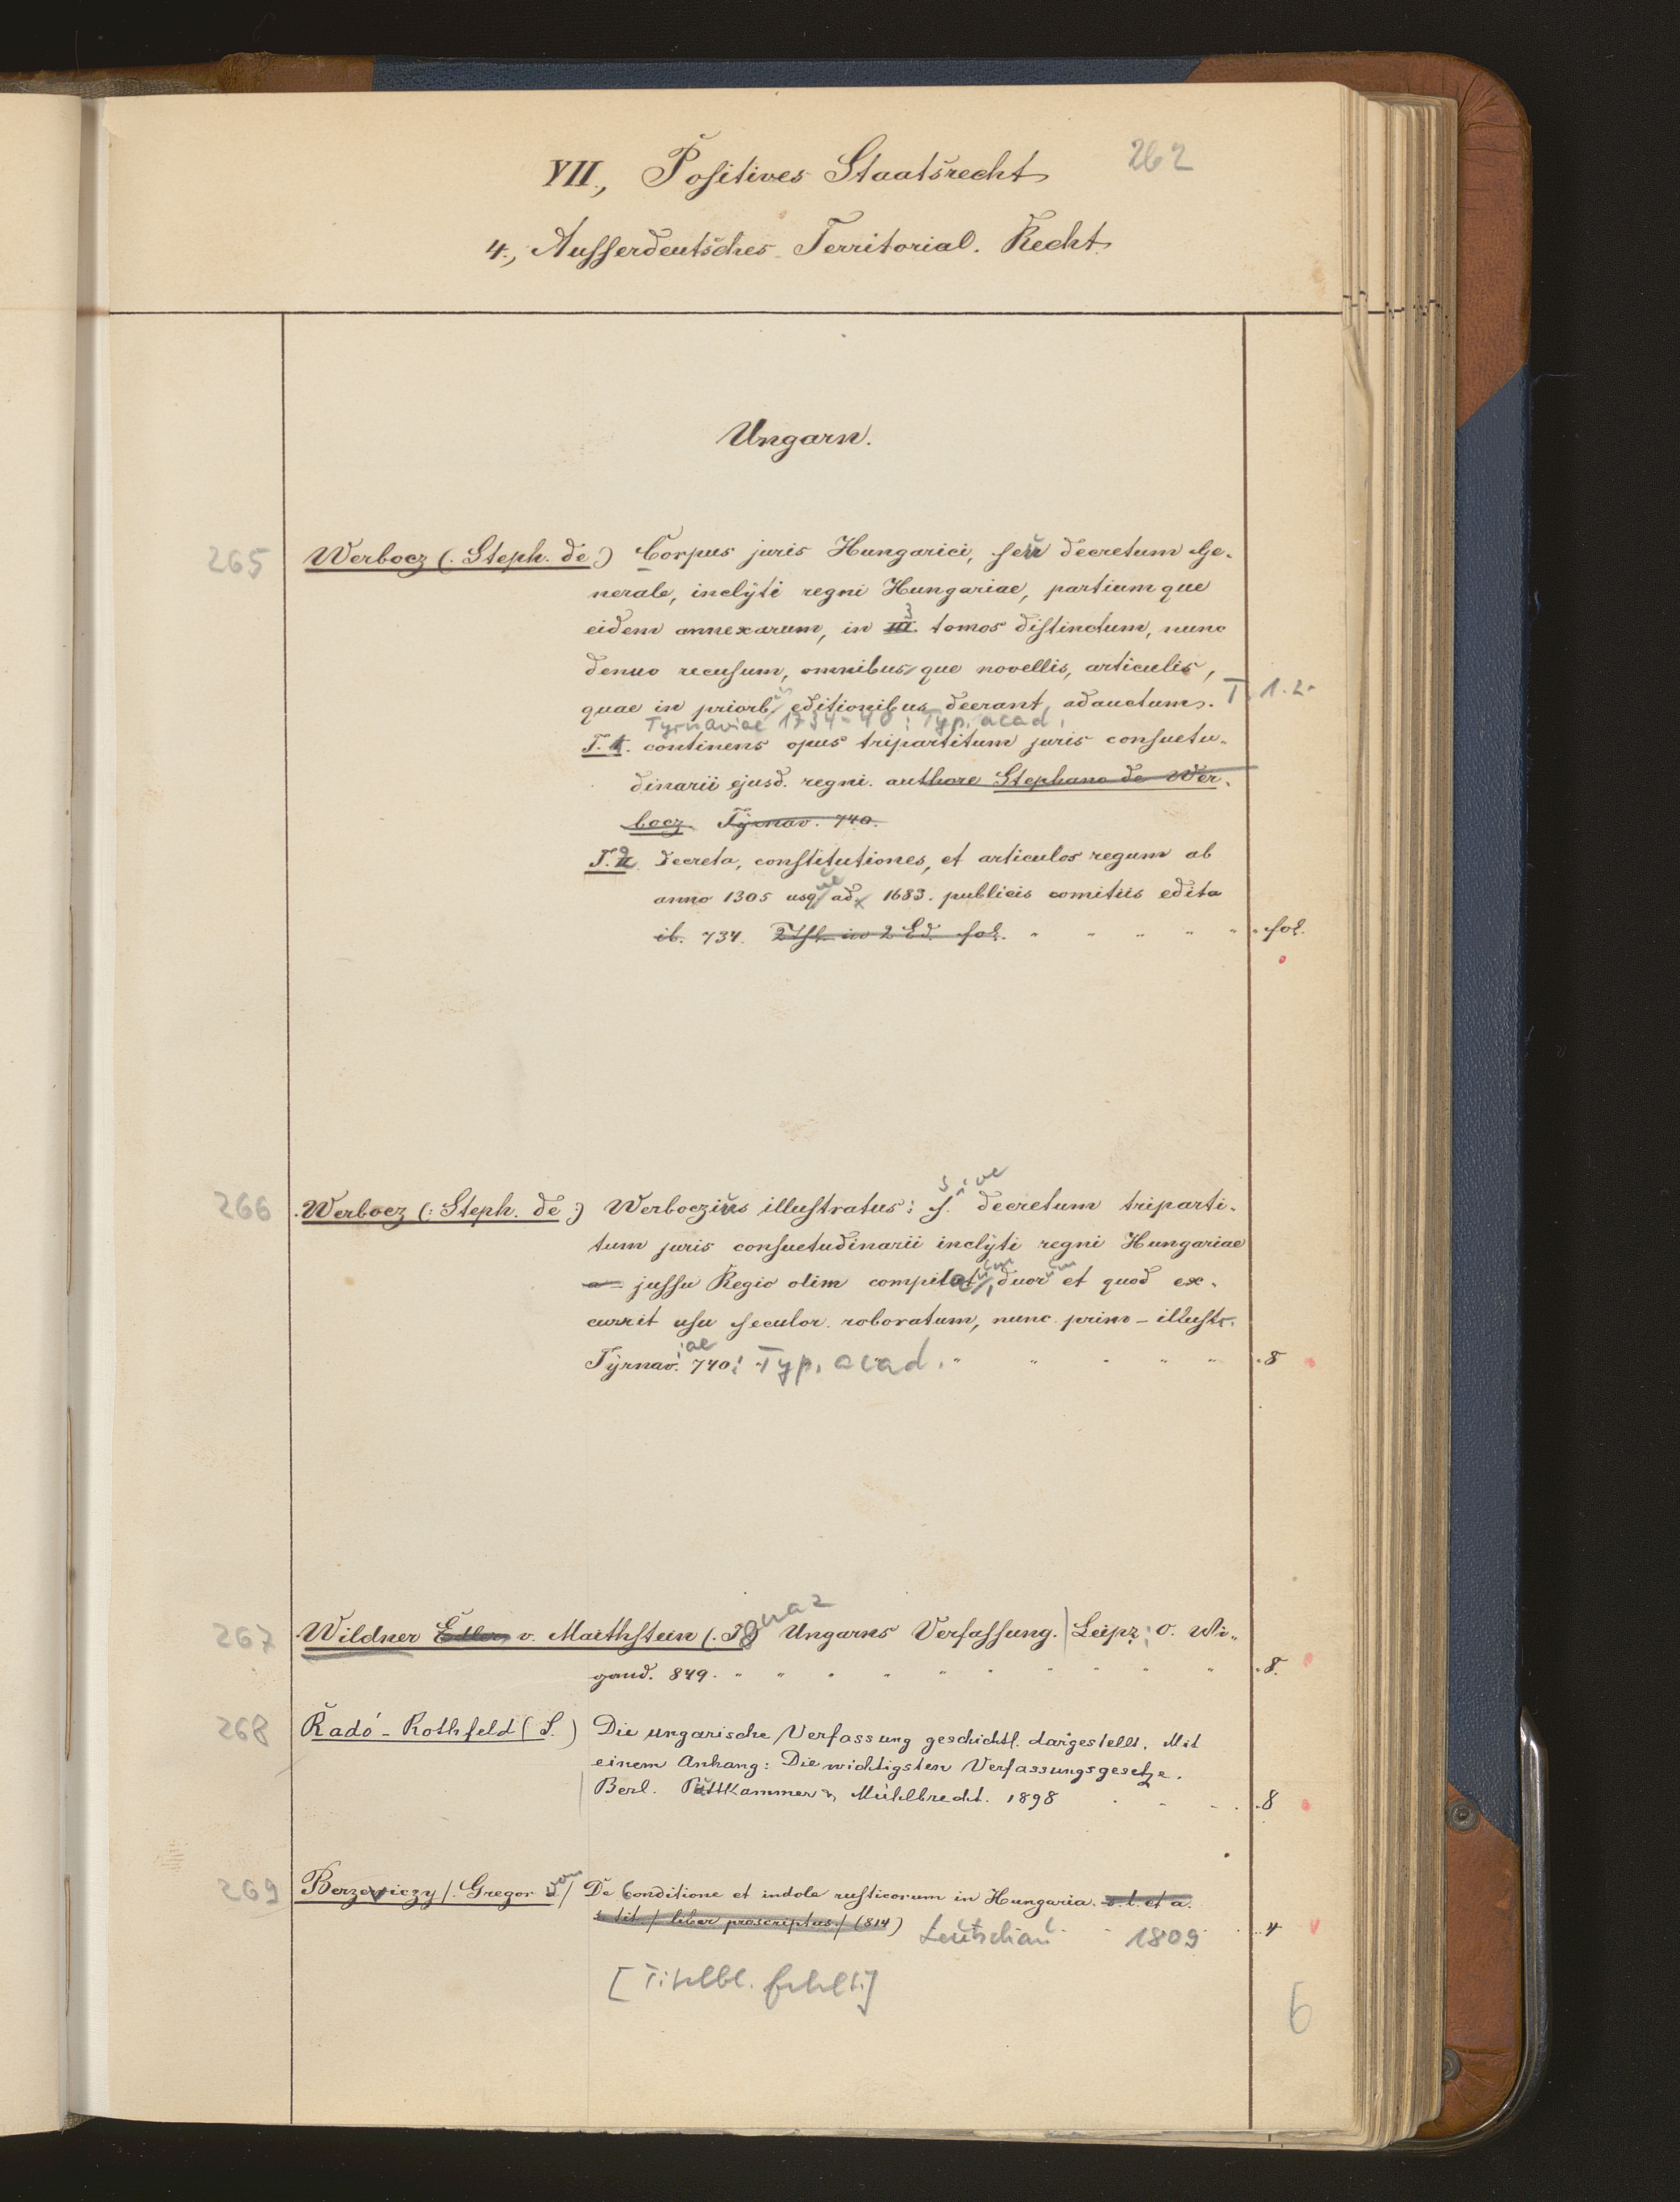 262
VII., Positives Staatsrecht
4., Ausserdeutsches Territorial. Recht.
Ungarn.
265 Werbocz (. Steph. de.) Corpus juris Hungarici, seu decretum Ge-
nerale, inclyti regni Hungariae, partium que
3
eidem annexarum, in III tomos distinctum, nunc
denuo recusum, omnibus que novellis, articulis,
quae in priorb us editionibus deerant, adauctum. T. 1. 2.
Tyrnaviae 1734-40: Typ. acad.
T. 1. continens opus tripartitum juris consuetu-
dinarii ejusd. regni. authore Stephano de Wer-
bocz Tyrnav. 740.
T. 2 Decreta, constitutiones, et articulos regum ab
anno 1305 usq ue ad 1683. publicis comitiis edita
ib. 734. 2 Thl. in 2 Bd. fol. " " " " " fol.
266 Werbocz (: Steph. de :) Werboczius illustratus: s. ive decretum triparti-
tum juris consuetudinarii inclyti regni Hungariae
a jussu Regio olim compilat um, duor um et quod ex-
currit usu seculor. roboratum, nunc prim - illustr.
Tyrnav. iae 740: Typ. acad. " " " " " 8
267 Wildner Edler v. Maithstein (. Ignaz Ungarns Verfassung. Leipz: O. Wi-
gand. 849. " " " " " " " " " " 8.
268 Radó - Rothfeld (S.) Die ungarische Verfassung geschichtl. dargestellt. Mit
einem Anhang: Die wichtigsten Verfassungsgesetze.
Berl. Puttkammer & Mühlbrecht. 1898 . . . . 8
269 Berzeviczy /. Gregor von / De Conditione et indole rusticorum in Hungaria. s. l. et a.
s. tit. / liber proscriptus / (814) Leutschau 1809 4
[Titelbl. fehlt.]
6